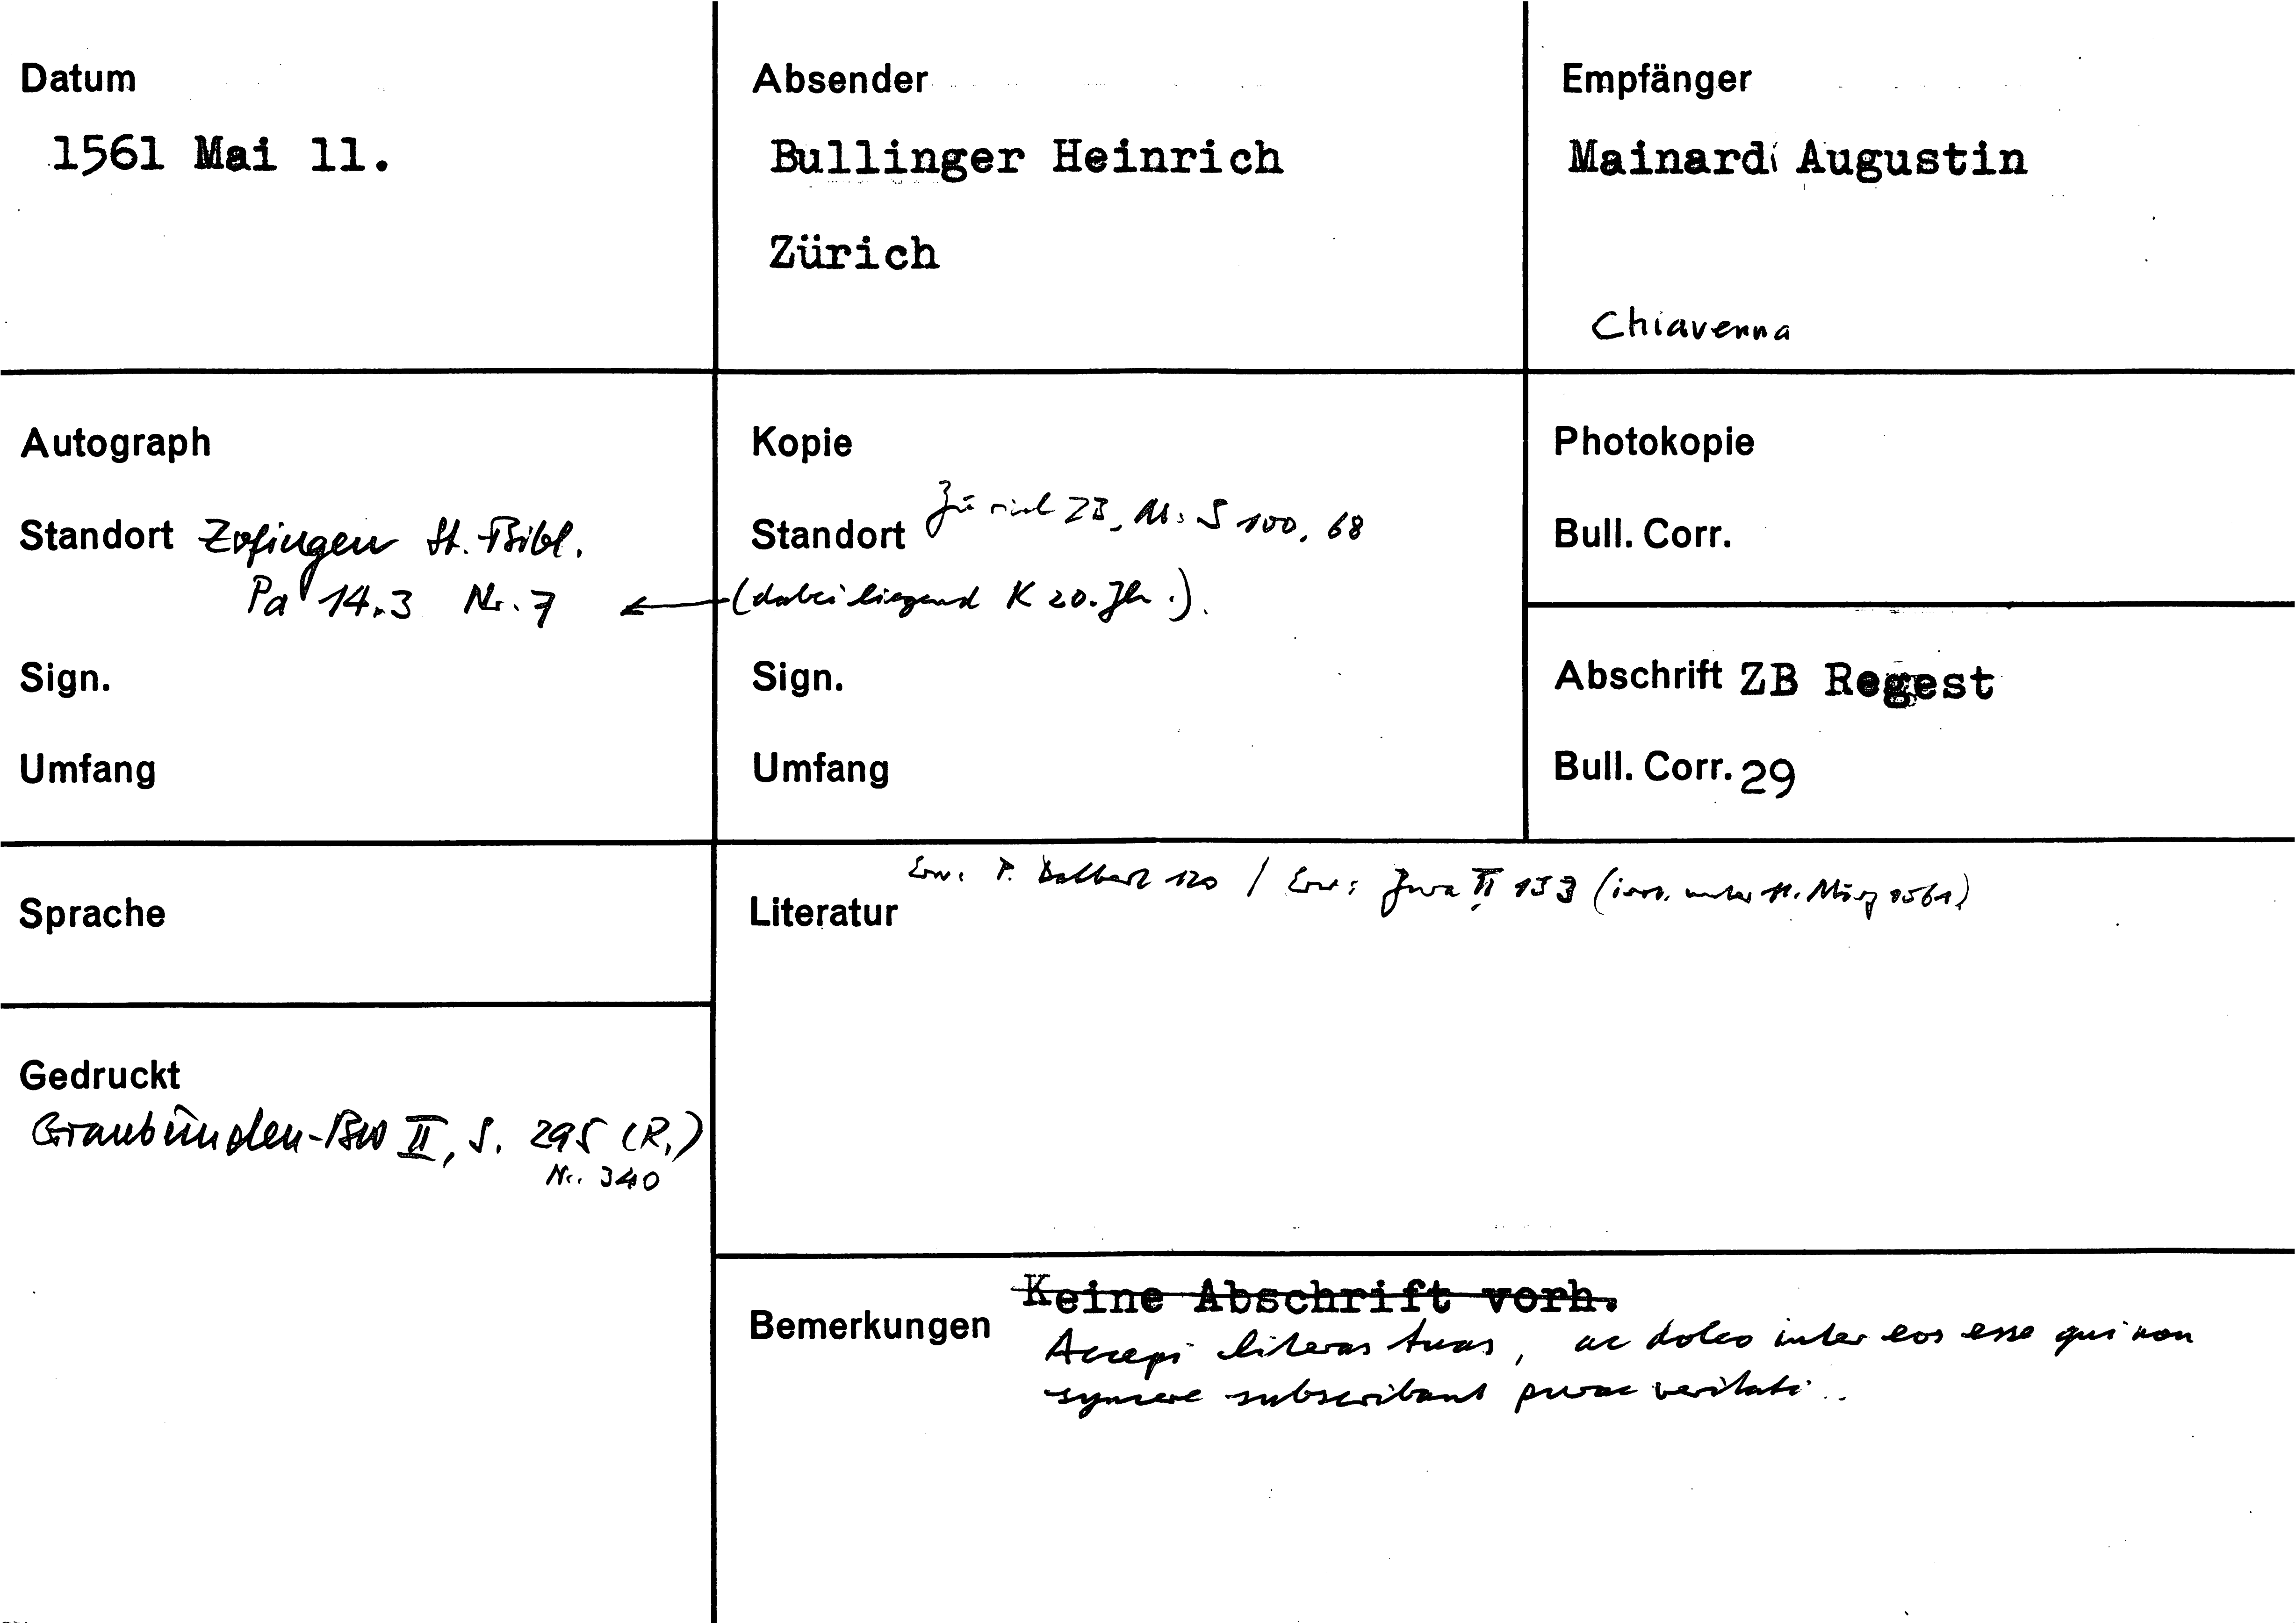 Datum
1561 Mai 11.
Absender
Bullinger Heinrich
Zürich
Empfänger
Mainardi Augustin
Chiavenna
Autograph
Standort Zofingen St. Bibl.
Pa 14.3 Nr. 7
Sign.
Umfang
Kopie
Standort Zürich ZB, Ms S 100, 68
(dabei liegend K 20. Jh.).
Sign.
Umfang
Photokopie
Bull. Corr.
Abschrift ZB Regest
Bull. Corr. 29
Sprache
Gedruckt
Graubünden-BW II, S. 295 (R.)
Nr. 340
Literatur
Erw. P. 120 / Erw: II 153 (irrt. unter 11. März 1561)
Bemerkungen
Keine Abschrift vorh.
Accepi literas tuas, ac doleo inter eos esse qui non
syncere subscribant purae veritati..